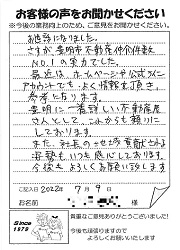 お客様の声をお聞かせください
※今後の業務向上のため、ご意見をお聞かせください
お世話になりました。
さすが、豊明市不動産仲介件数
No.1の実力でした。
最近は、ホームページや公式ライン
アカウントでも、よく情報を頂き、
参考になります。
豊明に一番詳しい不動産屋
さんとして、これからも頼りに
しております。
また、社長の
姿勢も、いつも感心しております。
今後もよろしくお願い致します
ご記入日 2022年 7月 9日
お名前 様
Since
1979
貴重なご意見ありがとうございました!
今後も頑張りますので
よろしくお願いいたします